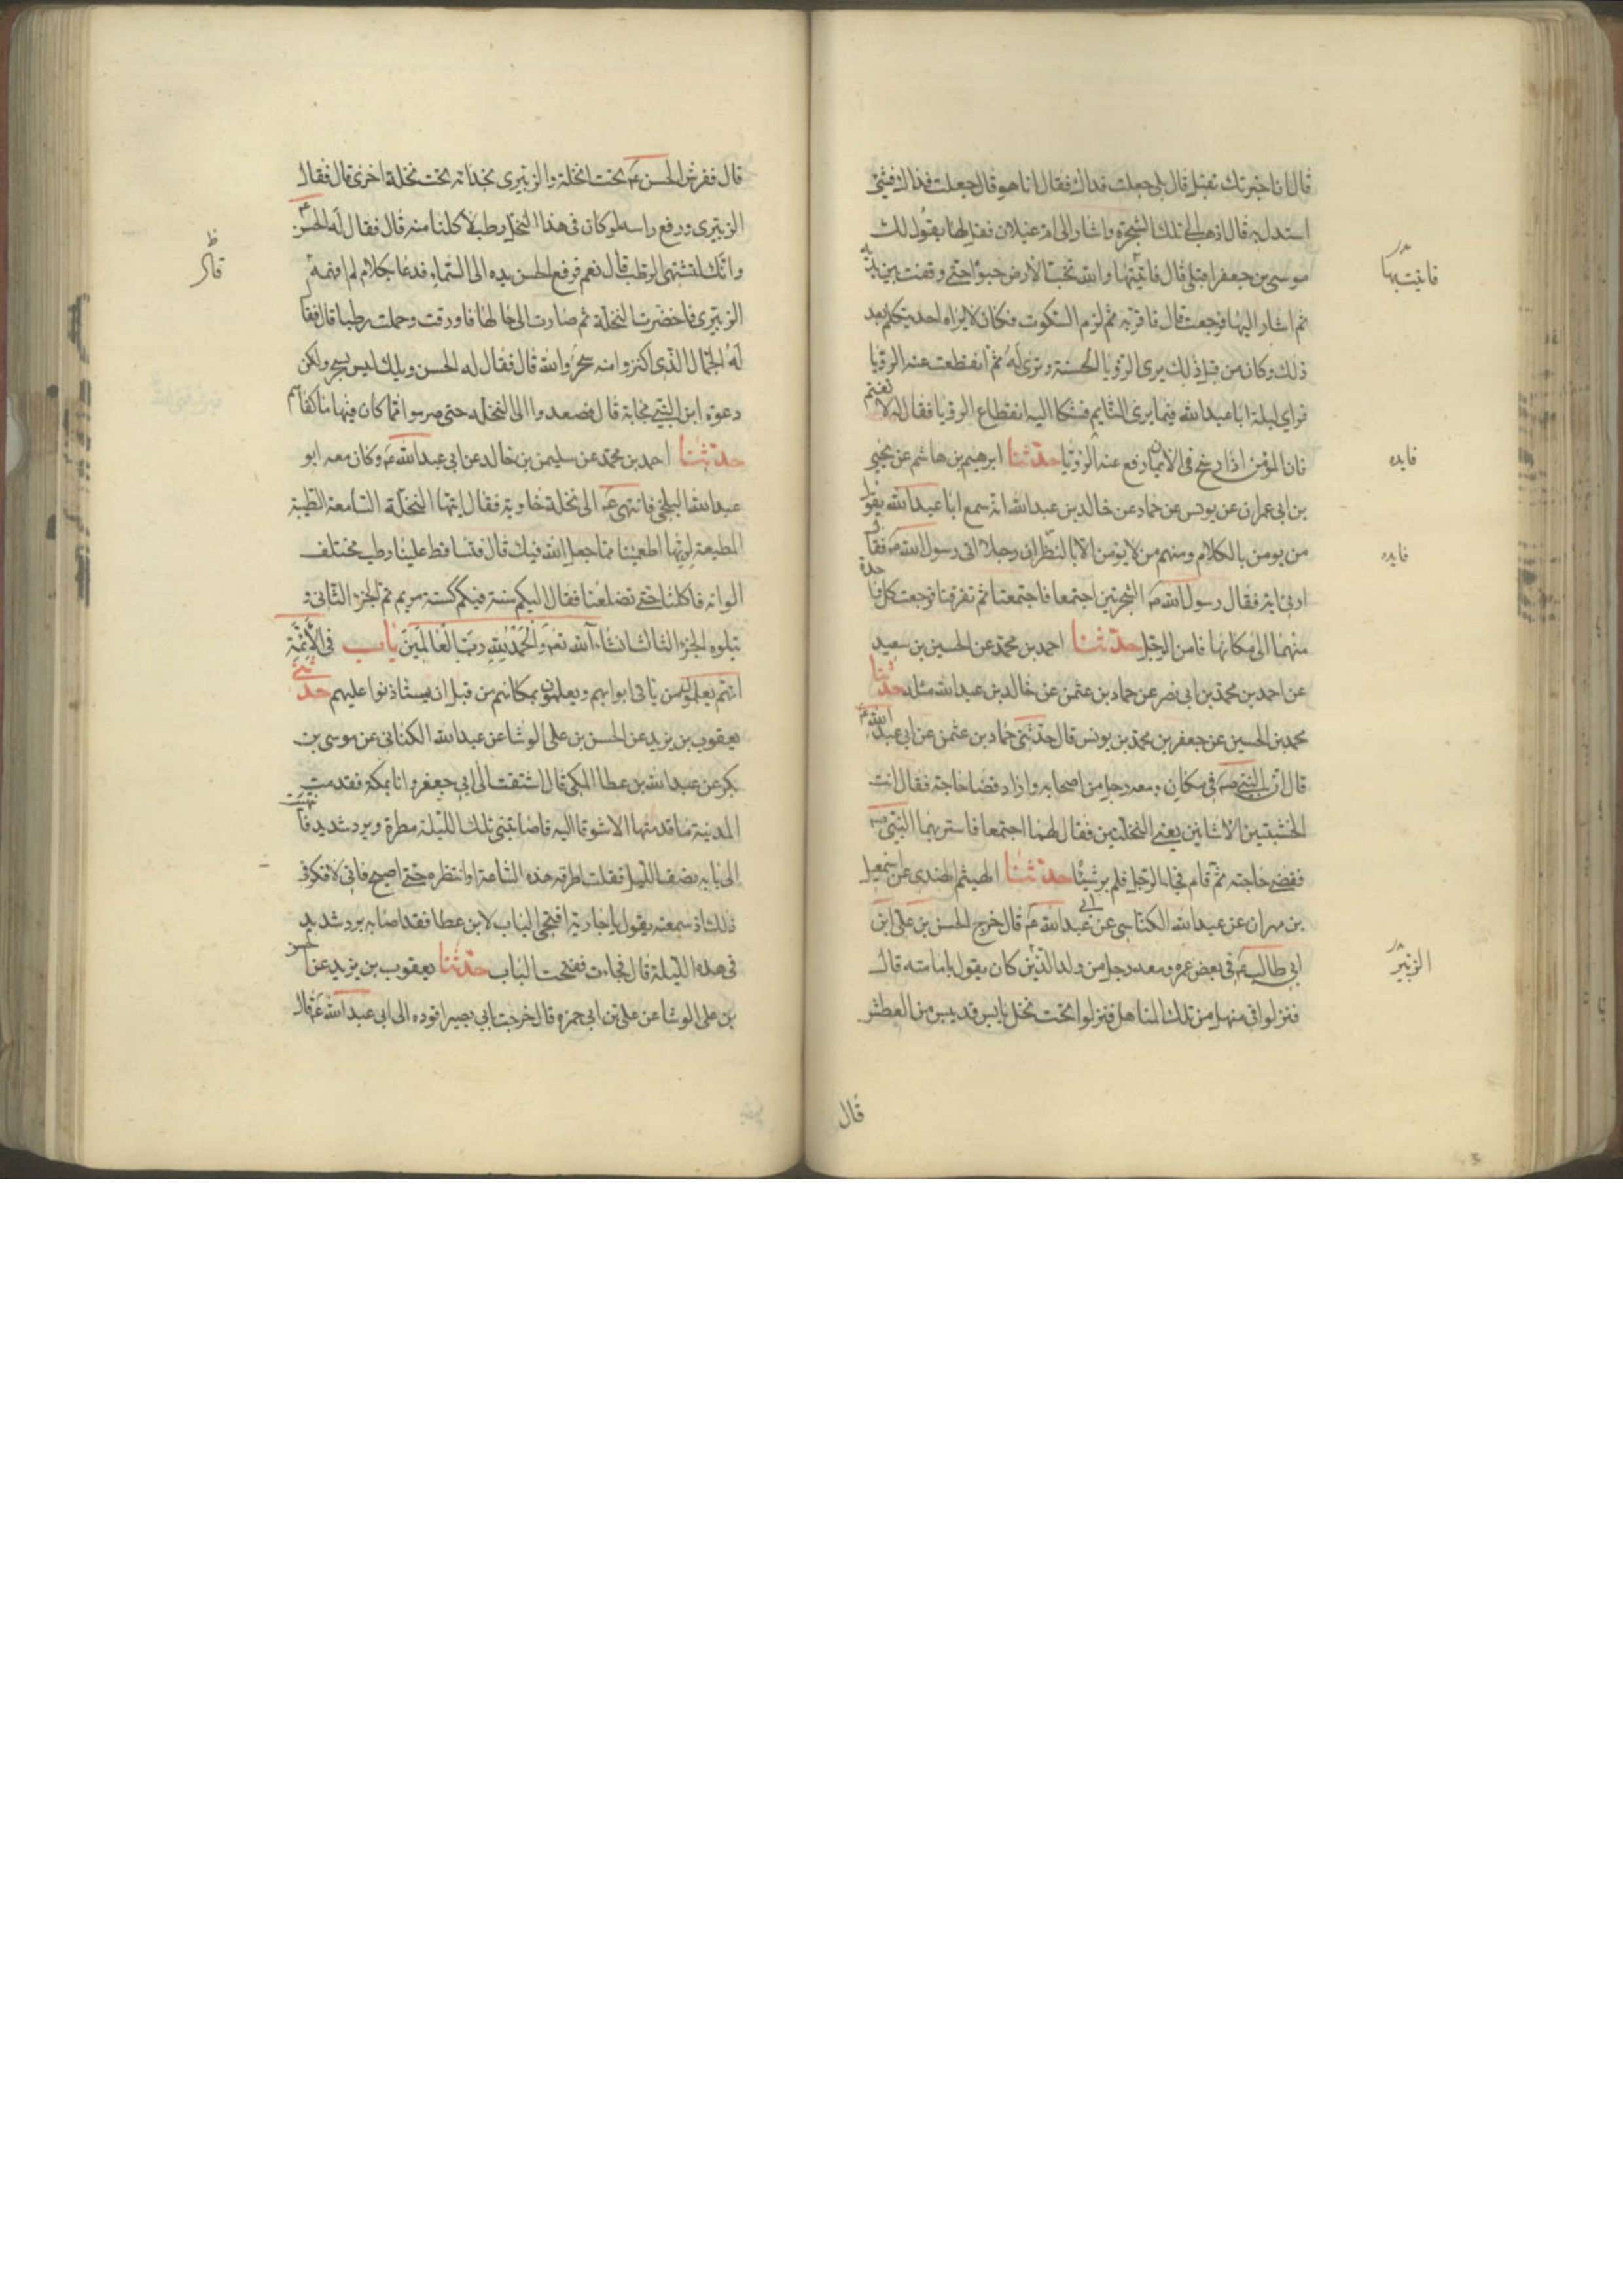 قال انا اخبرتك تقبل قال بلى جعلت فداك فقال انا هو قال جعلت فداك فشئ
استدل به قال اذهب الى تلك الشجرة واشار الى ام غيلان فقل لها يقول لك
موسى بن جعفر اقبلى قال فاتيتها والله تخب الارض حبوا حتى وقفت بين يديه
ثم اشار اليها فرجعت قال فاقر به ثم لزم السكوت فكان لا يراه احد يتكلم بعد
ذلك وكان من قبل ذلك يرى الرؤيا الحسنة وترى له ثم انقطعت عنه الرؤيا
فراى ليلة ابا عبد الله فيما يرى النايم فشكا اليه انقطاع الرؤيا فقال له لا تغتم
فان المؤمن اذا رسخ فى الايمان رفع عنه الرؤيا حدثنا ابرهيم بن هاشم عن يحيى
بن ابى عمران عن يونس عن حماد عن خالد بن عبد الله انه سمع ابا عبد الله يقول
من يومن بالكلام ومنهم من لا يومن الا بالنظر ان رجلا اتى رسول الله ص فقال
ارنى اية فقال رسول الله ص الشجرتين اجتمعا فاجتمعتا ثم تفرقتا فرجعت كل واحدة
منهما الى مكانها فامن الرجل حدثنا احمد بن محمد عن الحسين بن سعيد
عن احمد بن محمد بن ابى نصر عن حماد بن عثمن عن خالد بن عبد الله مثله حدثنا
محمد بن الحسين عن جعفر بن محمد بن يونس قال حدثنى حماد بن عثمن عن ابى عبد الله ع
قال ان النبى ص فى مكان ومعه رجل من اصحابه واراد قضا حاجته فقال ائت
الخشبتين الاشائين يعنى النخلتين فقال لهما اجتمعا فاستر بهما النبى ص
فقضى حاجته ثم قام فجاء الرجل فلم ير شيئا حدثنا الهيثم النهدى عن اسمعيل
بن مهران عن عبد الله الكناسى عن ابى عبد الله ع قال خرج الحسن بن على ابن
ابى طالب ع فى بعض عمره ومعه رجل من ولد الزبير كان يقول بامامته قال
فنزلوا فى منهل من تلك المناهل فنزلوا تحت نخل يابس قد يبس من العطش
فاتيتها
فايده
فايده
الزبير
قال
قال ففرش الحسن ع تحت نخلة والزبيرى بحذائه تحت نخلة اخرى قال فقال
الزبيرى ورفع راسه لو كان فى هذا النخل رطب لاكلنا منه قال فقال له الحسن ع
وانك لتشتهى الرطب قال نعم فرفع الحسن يده الى السماء فدعا بكلام لم افهمه
الزبيرى فاخضرت النخلة ثم صارت الى حالها فاورقت وحملت رطبا قال فقال
له الجمال الذى اكتروا منه سحر والله قال فقال له الحسن ويلك ليس بسحر ولكن
دعوة ابن النبى مجابة قال فصعدوا الى النخلة حتى صرموا مما كان فيها ما كفاهم
حدثنا احمد بن محمد عن سليمن بن خالد عن ابى عبد الله ع وكان معه ابو
عبد الله البلخى فانتهى ع الى نخلة خاوية فقال ايتها النخلة السامعة الطيبة
المطيعة لربها اطعمينا مما جعل الله فيك قال فتساقط علينا رطب مختلف
الوانه فاكلنا حتى تضلعنا فقال اليكم سنة فيكم كسنة مريم تم الجزء الثانى و
يتلوه الجزء الثالث انشاء الله تعم والحمد لله رب العالمين باب فى الائمة
انهم يعلمون من ياتى ابوابهم ويعلمون بمكانهم من قبل ان يستاذنوا عليهم حدثنى
يعقوب بن يزيد عن الحسن بن على الوشا عن عبد الله الكنانى عن موسى بن
بكر عن عبد الله بن عطا المكى قال اشتقت الى ابى جعفر وانا بمكة فقدمت
المدينة ما قدمتها الا شوقا اليه فاصابتنى تلك الليلة مطرة وبرد شديد فانتهيت
الى بابه نصف الليل فقلت اطرقه هذه الساعة او انتظره حتى اصبح فانى لافكر فى
ذلك اذ سمعته يقول يا جارية افتحى الباب لابن عطا فقد اصابه برد شديد
فى هذه الليلة قال فجاءت ففتحت الباب حدثنا يعقوب بن يزيد عن الحسن
بن على الوشا عن على بن ابى حمزه قال خرجت بابى بصير اقوده الى ابى عبد الله ع قال
ظ
قال